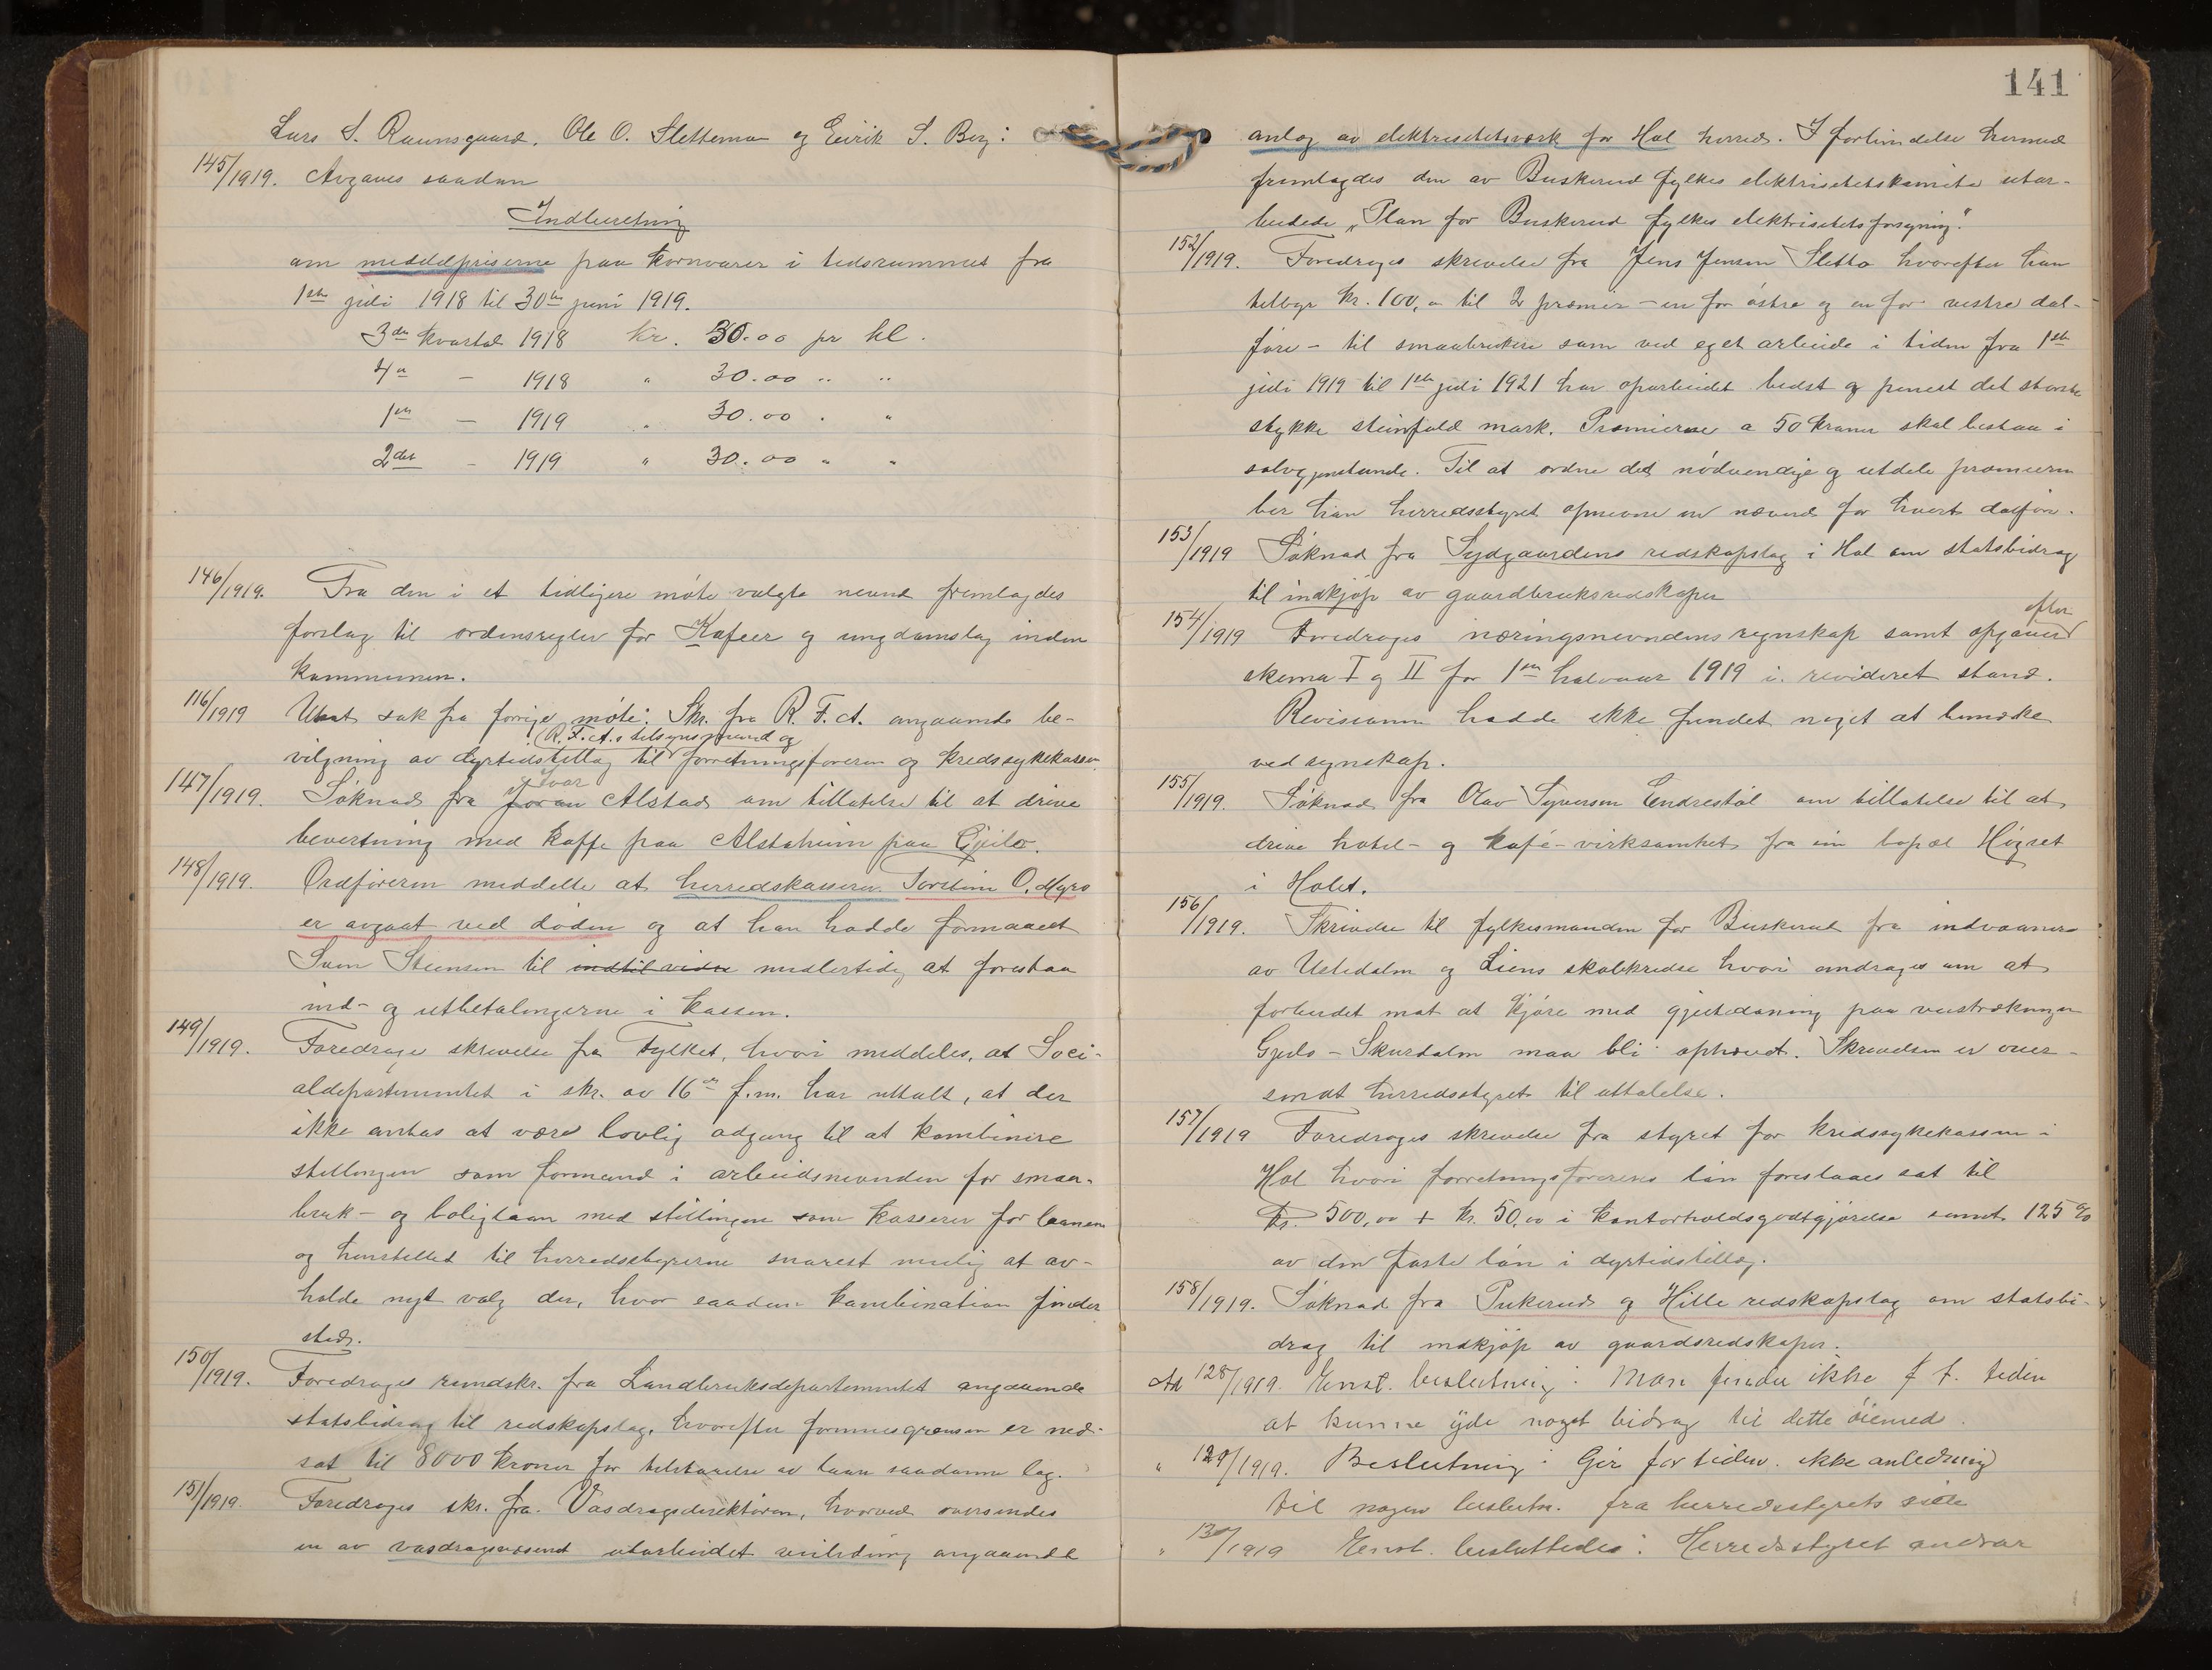 Lars S. Raunsgaard, Ole O. Slettemo og Eirik S. Berg:
145/1919. Avgaves saadan
Indberetning
om middelpriserne paa kornvarer i tidsrummet fra
1ste juli 1918 til 30te juni 1919.
3die kvartal 1918 kr. 30.00 pr hl.
4de — 1918 " 30.00 " "
1ste — 1919 " 30.00 " "
2det — 1919 " 30.00 " "
146/1919. Fra den i et tidligere møte valgte nevnd fremlagdes
forslag til ordensregler for Kafeer og ungdomslag inden
kommunen.
116/1919 Utsat sak fra forrige møte: Skr. fra R. F. A. angaaende be-
R.F.A.s tilsynsmand og
vilgning av dyrtidstillag til forretningsføreren og kredssykekassen
147/1919. Søknad fra Ivar Alstad om tillatelse til at drive
bevertning med kaffe paa Alstaheim paa Gjeilo.
148/1919. Ordføreren meddelte at herredskasserer Torstein O. Myro
er avgaat ved døden og at han hadde formaaet
Sven Steinsen til indtil videre midlertidig at forestaa
ind- og utbetalingerne i kassen.
149/1919. Foredrages skrivelse fra Fylket, hvori meddeles, at Soci-
aldepartementet i skr. av 16de f.m. har uttalt, at der
ikke antas at være lovlig adgang til at kombinere
stillingen som formand i arbeidsnevnden for smaa-
bruk- og boliglaan med stillingen som kasserer for laanene
og henstillet til herredsstyrerne snarest mulig at av-
holde nyt valg der, hvor saadan kombination finder
sted.
150/1919. Foredrages rundskr. fra Landbruksdepartementet angaaende
statsbidrag til redskapslag, hvorefter formuesgrænsen er ned-
sat til 8000 kroner for tilstaaelse av laan saadanne lag.
151/1919. Foredrages skr. fra Vasdragsdirektøren, hvorved oversendes
en av vasdragsvæsenet utarbeidet veiledning angaaende
141
anlæg av elektricitetsverk for Hol herred. I forbindelse hermed
fremlagdes den av Buskerud fylkes elektricitetskomite utar-
beidede „Plan for Buskerud fylkes elektricitetsforsyning."
152/1919. Foredrages skrivelse fra Jens Jensen Sletto hvorefter han
tilbyr kr. 100,00 til 2 præmier – en for østre og en for vestre dal-
føre – til smaabrukere som ved eget arbeide i tiden fra 1ste
juli 1919 til 1ste juli 1921 har oparbeidet bedst og penest det største
stykke steinfuld mark. Præmierne a 50 kroner skal bestaa i
sølvgjenstande. Til at ordne det nødvendige og utdele præmierne
ber han herredsstyret opnevne en nævnd for hvert dalføre.
153/1919 Søknad fra Sydgaardens redskapslag i Hol om statsbidrag
til indkjøp av gaardbruksredskaper
154/1919 Foredrages næringsnevndens regnskap samt opgaver efter
skema I og II for 1ste halvaar 1919 i revideret stand.
Revisionen hadde ikke fundet noget at bemerke
ved regnskap.
155/1919. Søknad fra Olav Syversen Endrestøl om tillatelse til at
drive hotel- og kafé-virksomhet fra sin bopæl Høgset
i Holet.
156/1919. Skrivelse til fylkesmanden for Buskerud fra indvaanere
av Ustedalen og Liens skolekredse hvori andrages om at
forbudet mot at kjøre med gjeitedaning paa veistrækningen
Gjeilo – Skurdalen maa bli ophævet. Skrivelsen er over-
sendt herredsstyret til uttalelse.
157/1919 Foredrages skrivelse fra styret for kredssykekassen i
Hol hvori forretningsførerens løn foreslaaes sat til
kr. 500,00 + kr. 50,00 i kontorholdsgodtgjørelse samt 125 %
av den faste løn i dyrtidstillæg.
158/1919. Søknad fra Pukerud og Hille redskapslag om statsbi-
drag til indkjøp av gaardsredskaper.
Ad 128/1919. Enst. beslutning: Man finder ikke f. t. tiden
at kunne yde noget bidrag til dette øiemed.
" 129/1919. Beslutning: Gir for tiden ikke anledning
til nogen beslutn. fra herredsstyrets side
" 130/1919 Enst. besluttedes: Herredsstyret andrar